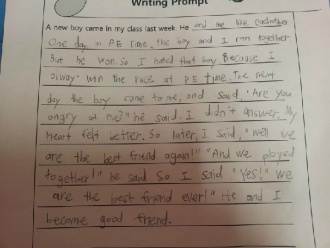 Writing Prompt
A new boy came in my class last week. He and me like eachother
One day in PE time, the boy and I ran together
But he won. So I hated that boy. Because I
alway win the race at PE time. The next
day the boy come to me, and said "Are you
angry at me?" he said. I didn't answer. My
heart felt better. So later, I said, "Well we
are the best friend again!" "And we played
together!" he said So I said "Yes!" we
are the best friend ever!" He and I
become good friend.